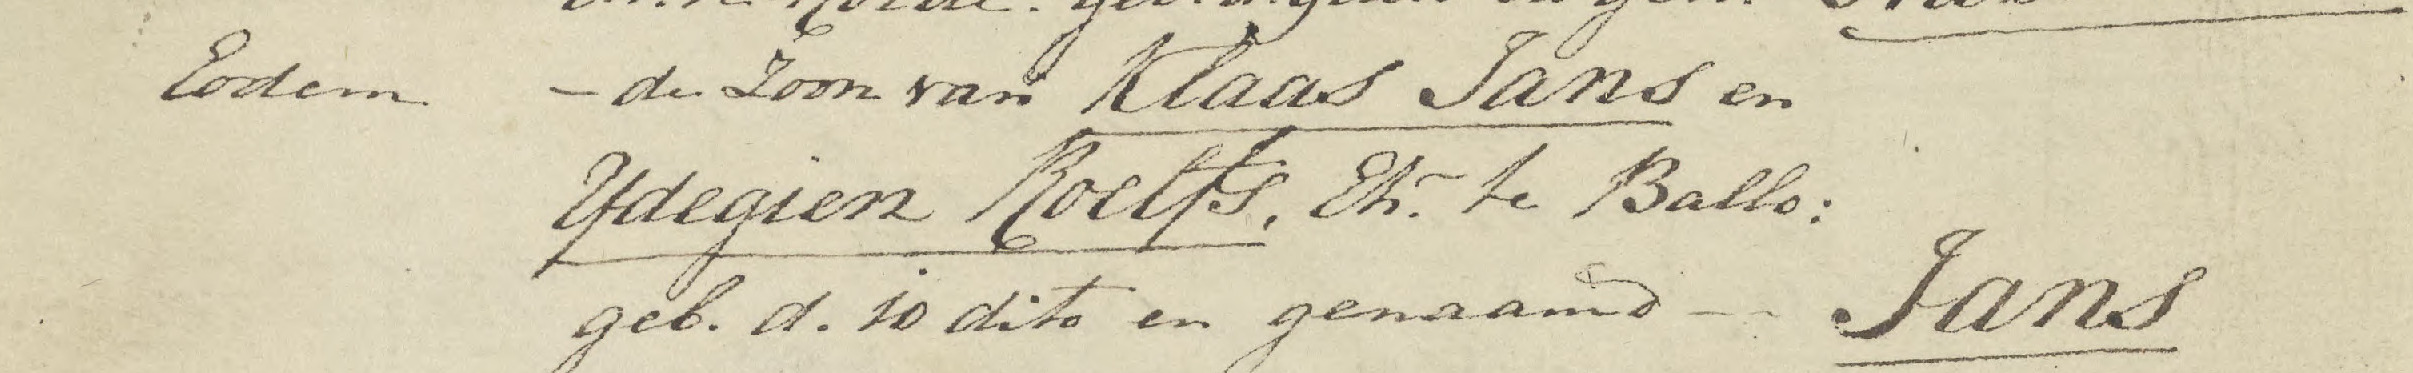 Eodem - de Zoon van Klaas Jans en
Ydegien Roelfs, Eh. te Ballo:
geb. d. 10 dito en genaamd - Jans